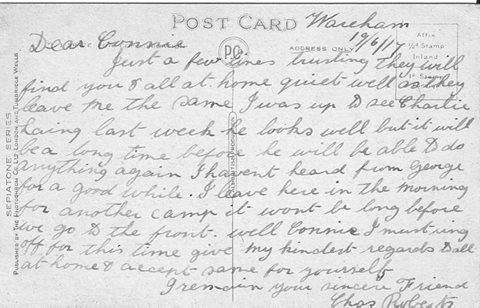 POST CARD
Wareham
19/6/17
Dear Connie
ADDRESS ONLY
Affix
½d Stamp
Inland
1d Stamp
Just a few lines trusting they will
find you & all at home quiet well as they
leave me the same I was up to see Charlie
Laing last week he looks well but it will
be a long time before he will be able to do
anything again I havent heard from George
for a good while. I leave here in the morning
for another camp it wont be long before
we go to the front. well Connie I must ring
off for this time give my kindest regards to all
at home & accept same for yourself
I remain your sincere Friend
Chas Roberts
SEPIATONE SERIES
PUBLISHED BY THE PHOTOCHROM CO. LTD. LONDON AND TUNBRIDGE WELLS